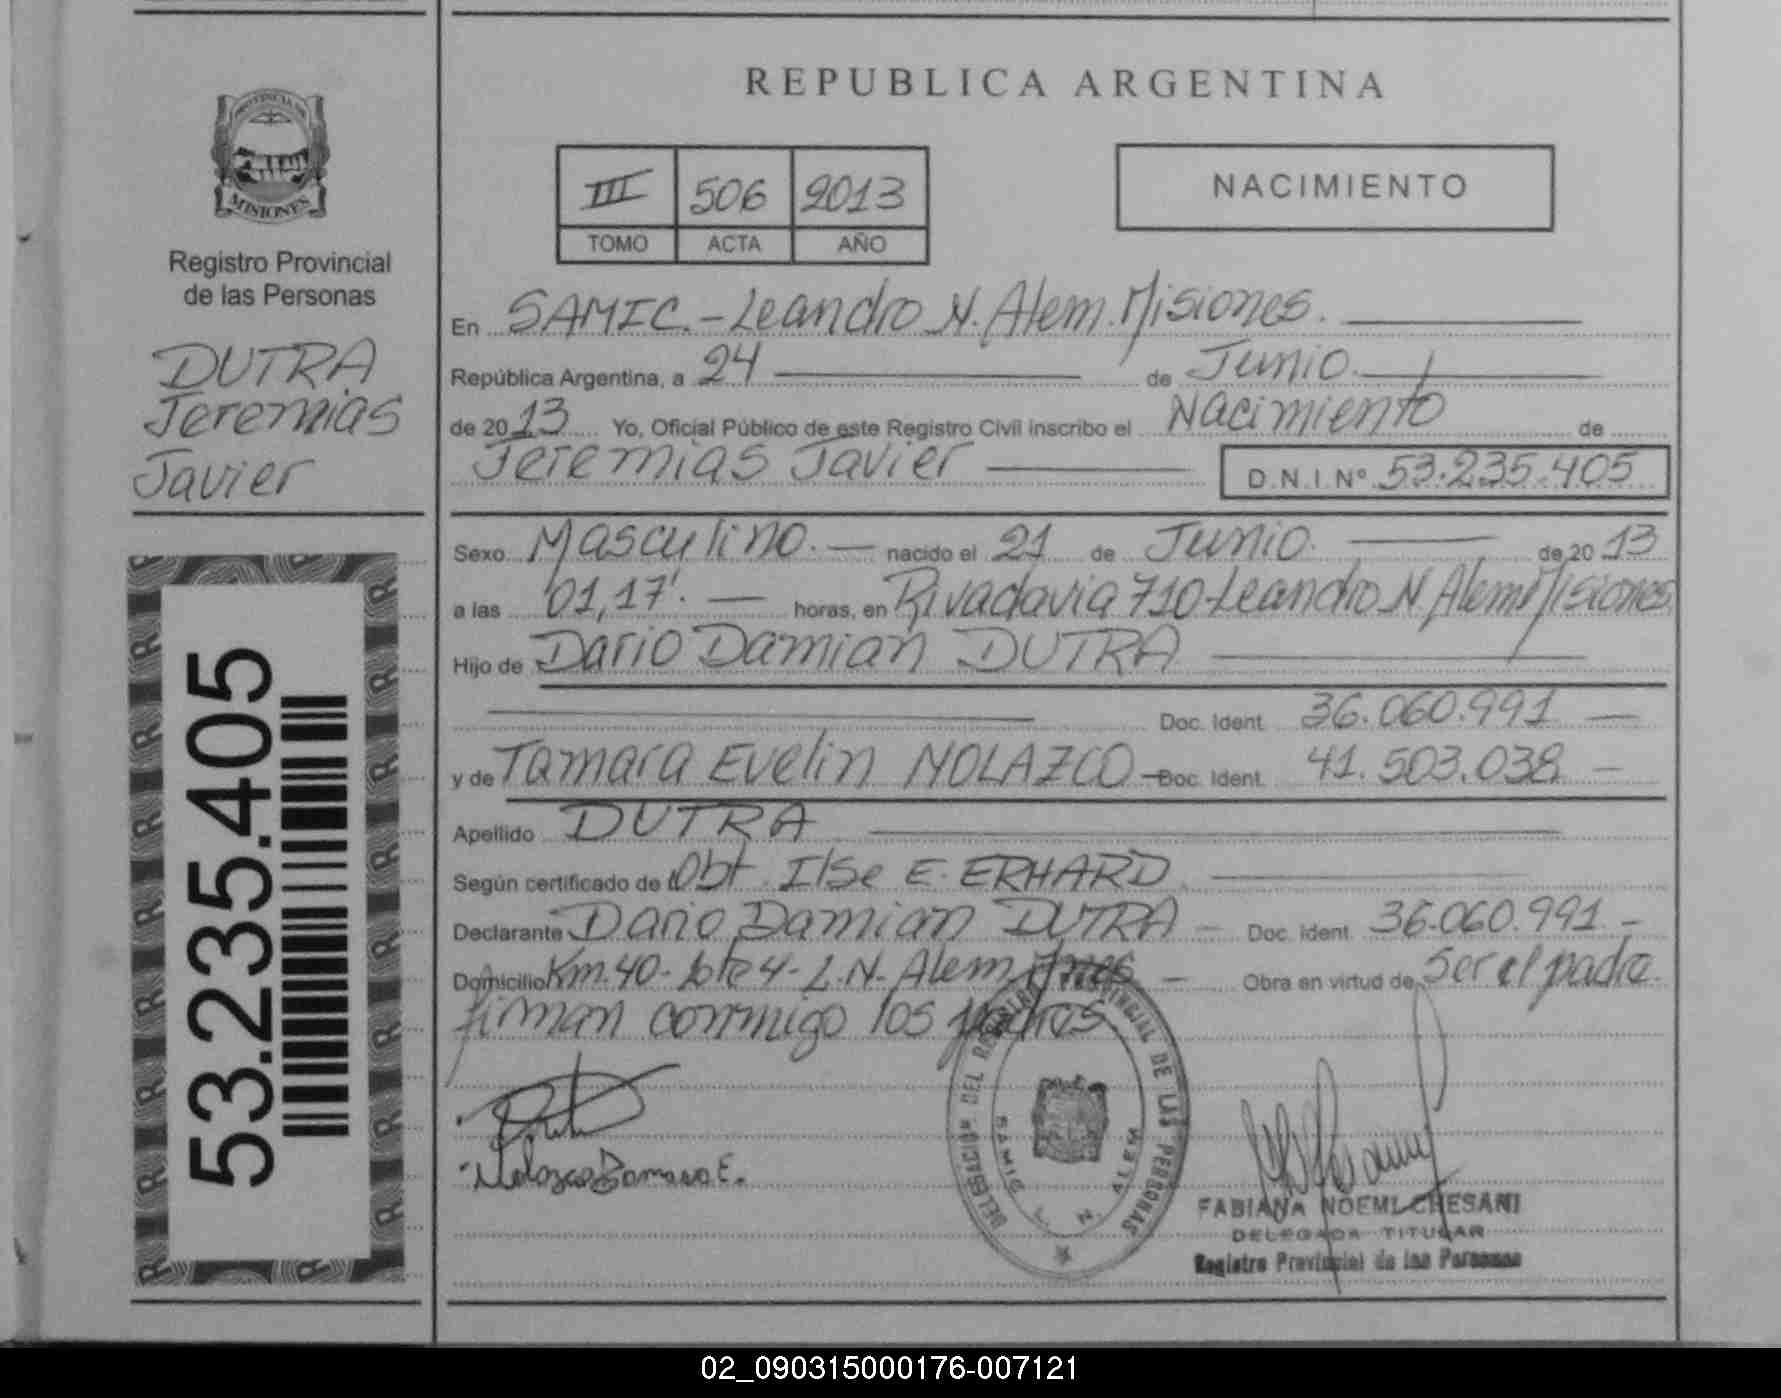 REPUBLICA ARGENTINA
PROVINCIA DE
MISIONES
Registro Provincial
de las Personas
DUTRA
Jeremias
Javier
53.235.405
III 506 2013
TOMO ACTA AÑO
NACIMIENTO
En SAMIC.-Leandro N. Alem. Misiones.
República Argentina, a 24 de Junio.
de 2013 Yo, Oficial Público de este Registro Civil inscribo el Nacimiento de
Jeremias Javier D.N.I.Nº 53.235.405
Sexo Masculino. nacido el 21 de Junio. de 2013
a las 01,17'. horas, en Rivadavia 710-Leandro N. Alem Misiones
Hijo de Dario Damian DUTRA
Doc. Ident. 36.060.991
y de Tamara Evelin NOLAZCO Doc. Ident. 41.503.038
Apellido DUTRA
Según certificado de Obt. Ilse E. ERHARD
Declarante Dario Damian DUTRA Doc. Ident. 36.060.991
Domicilio Km.40-lote 4-L.N.Alem Mnes Obra en virtud de Ser el padre.
firman conmigo los padres.
Nolazco Tamara E.
DELEGACION DEL REGISTRO PROVINCIAL DE LAS PERSONAS
SAMIC L. N. ALEM
FABIANA NOEMI CHESANI
DELEGADA TITULAR
Registro Provincial de las Personas
02_090315000176-007121